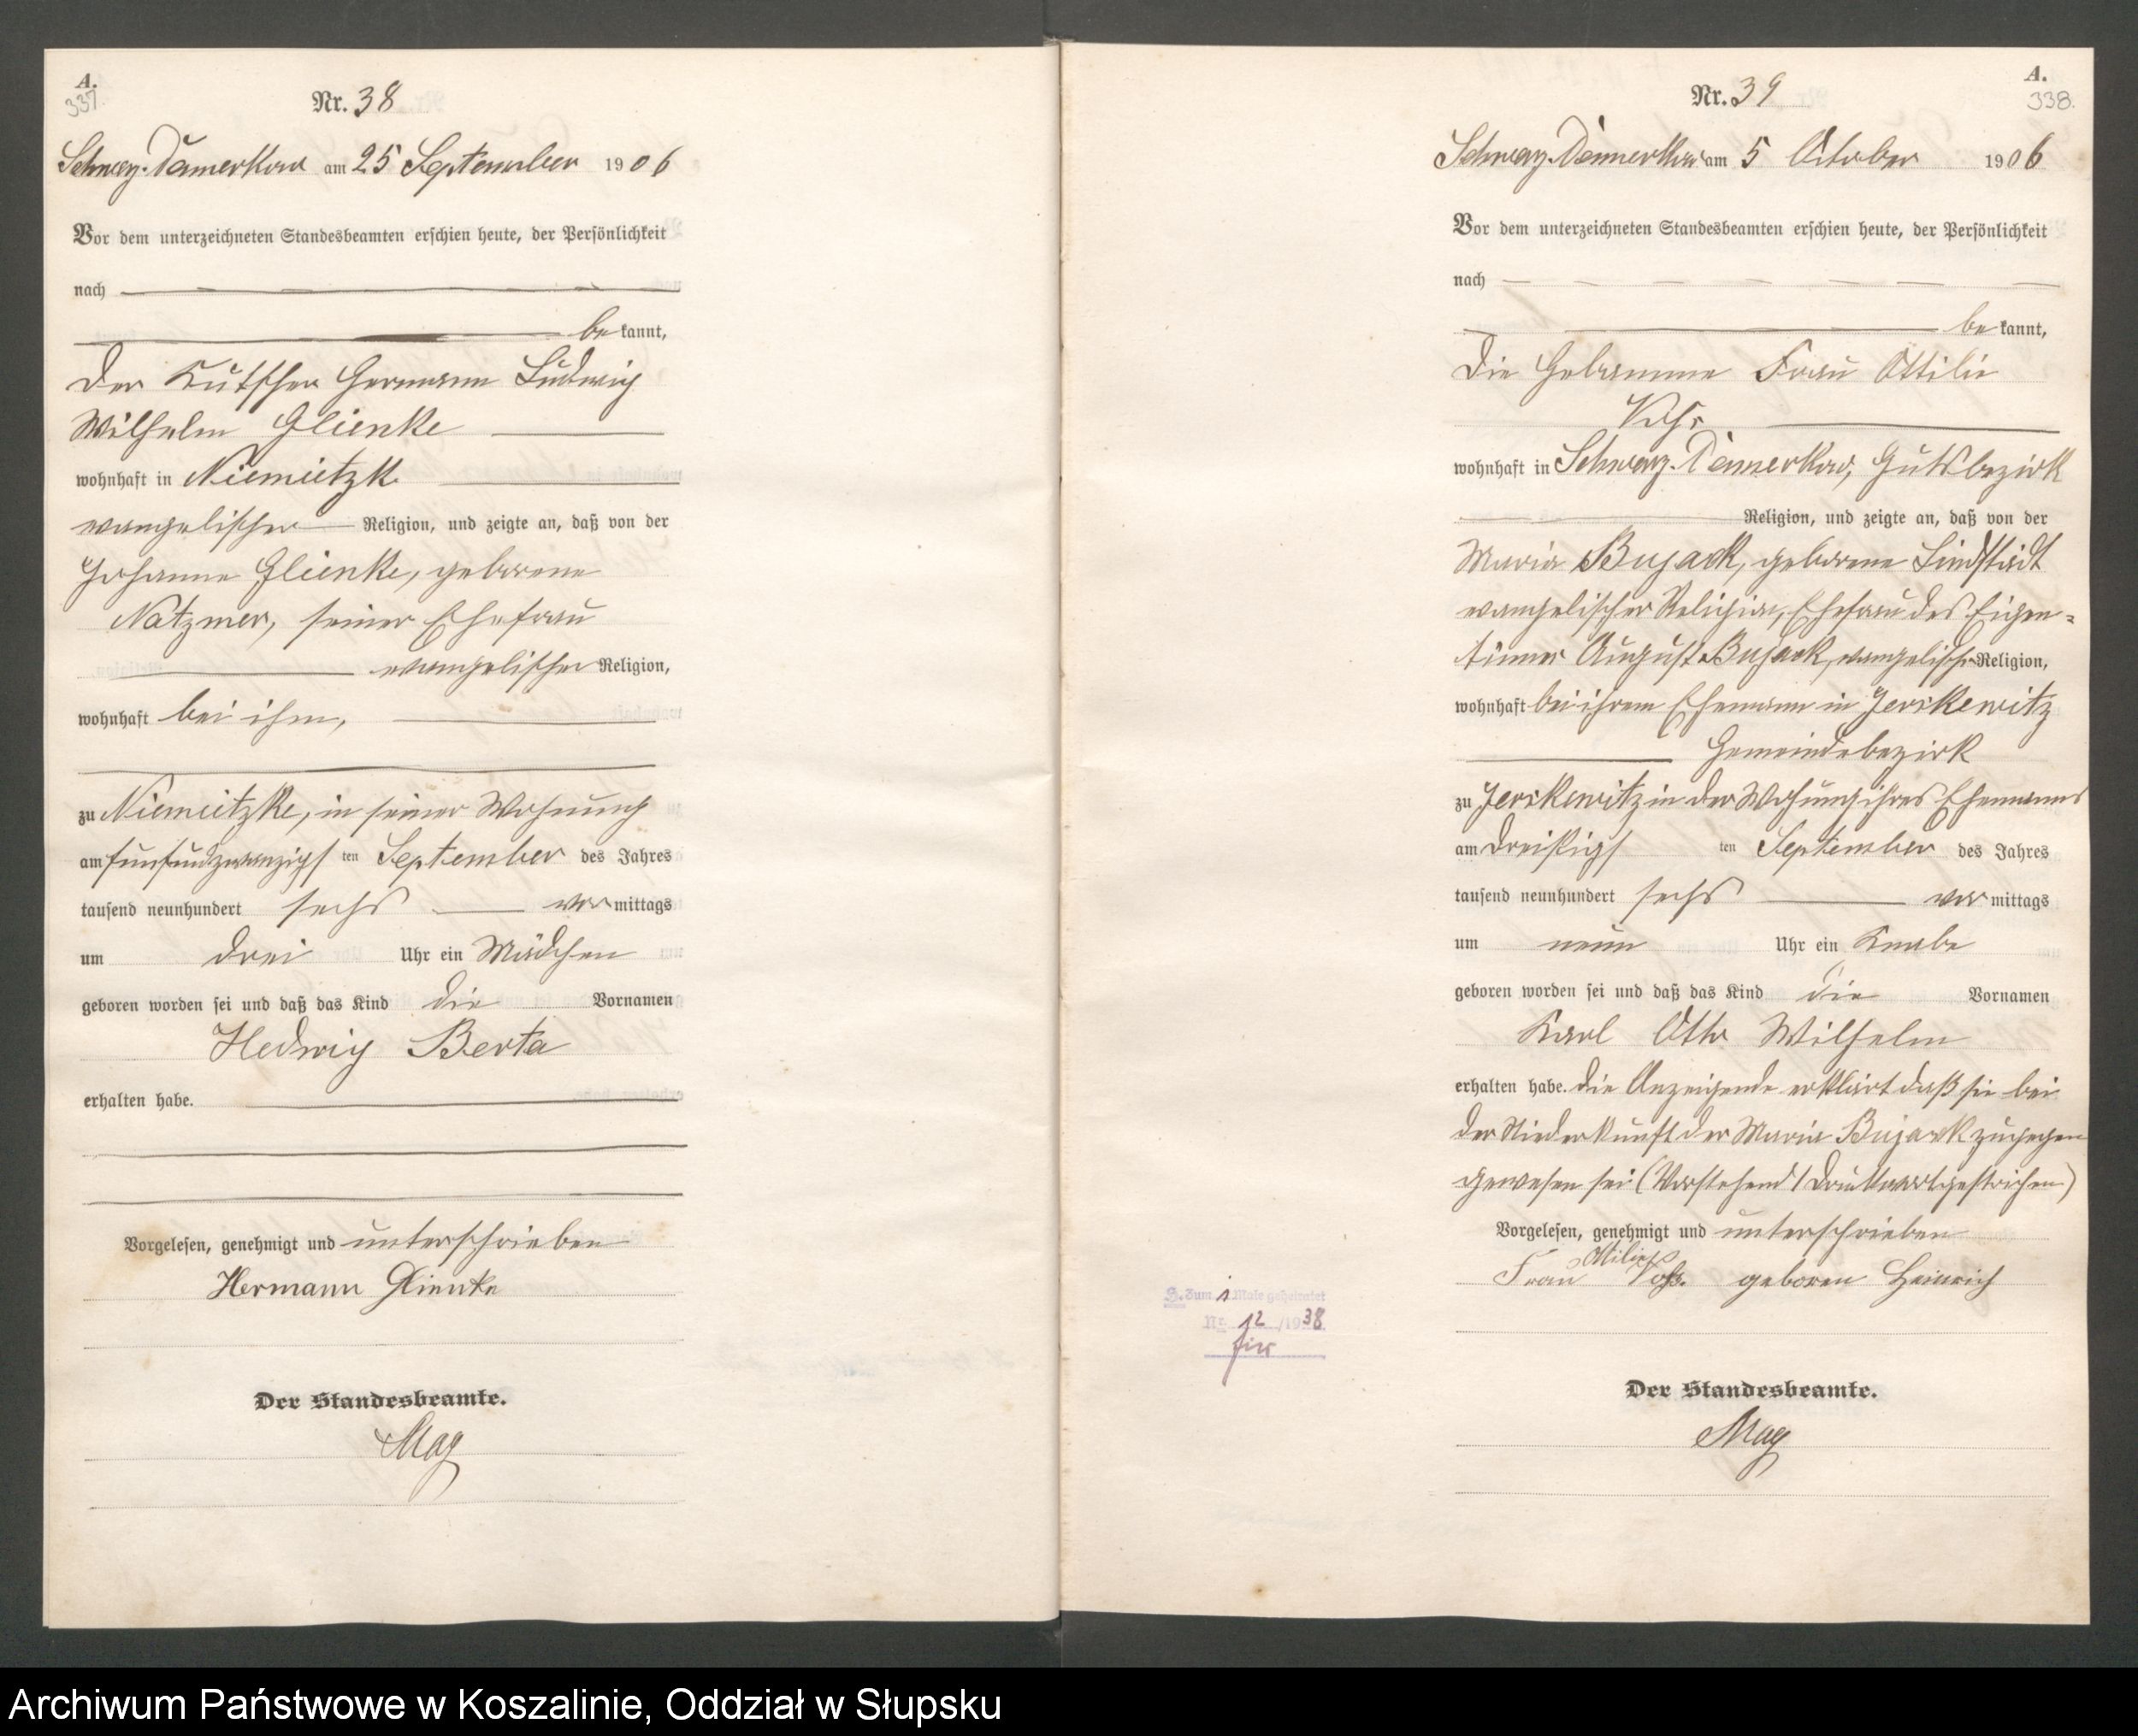 A.
337.
Nr. 38
Schwarz-Damerkow am 25 September 1906
Vor dem unterzeichneten Standesbeamten erschien heute, der Persönlichkeit
nach
bekannt,
der Kutscher Hermann Ludwig
Wilhelm Glienke
wohnhaft in Niemietzk
evangelischer Religion, und zeigte an, daß von der
Johanne Glienke, geborene
Natzmer, seiner Ehefrau
evangelischer Religion,
wohnhaft bei ihm,
zu Niemietzke, in seiner Wohnung
am fünfundzwanzigsten September des Jahres
tausend neunhundert sechs vormittags
um drei Uhr ein Mädchen
geboren worden sei und daß das Kind die Vornamen
Hedwig Berta
erhalten habe.
Vorgelesen, genehmigt und unterschrieben
Hermann Glienke
Der Standesbeamte.
Mag
A.
338.
Nr. 39
Schwarz-Damerkow am 5 October 1906
Vor dem unterzeichneten Standesbeamten erschien heute, der Persönlichkeit
nach
bekannt,
die Hebamme Frau Ottilie
Voß
wohnhaft in Schwarz-Damerkow, Gutsbezirk
Religion, und zeigte an, daß von der
Maria Bujack, geborene Lindstädt
evangelischer Religion, Ehefrau des Eigen-
tümer August Bujack, evangelischer Religion,
wohnhaft bei ihrem Ehemann in Jerskewitz
Gemeindebezirk
zu Jerskewitz in der Wohnung ihres Ehemanns
am dreißigsten September des Jahres
tausend neunhundert sechs vormittags
um neun Uhr ein Knabe
geboren worden sei und daß das Kind die Vornamen
Karl Otto Wilhelm
erhalten habe. Die Anzeigende erklärt daß sie bei
der Niederkunft der Maria Bujack zugegen
gewesen sei (Vorstehend 1 Druckwort gestrichen)
Vorgelesen, genehmigt und unterschrieben
Frau Ottilie Voß. geboren Heinrich
H. Zum 1. Male geheiratet
Nr. 12/1938
Der Standesbeamte.
Mag
Archiwum Państwowe w Koszalinie, Oddział w Słupsku